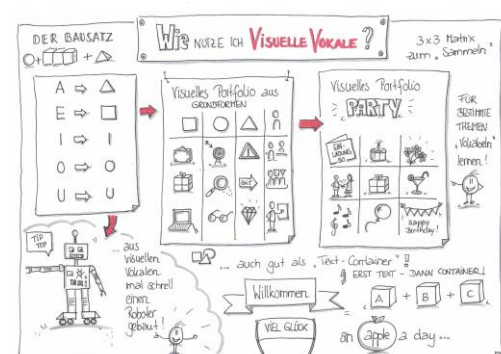 DER BAUSATZ
+ +
WIE NUTZE ICH VISUELLE VOKALE ?
3x3 Matrix
zum „Sammeln“
A ⇨
E ⇨
I ⇨ I
O ⇨ O
U ⇨ U
Visuelles Portfolio aus
GRUNDFORMEN
Visuelles Portfolio
PARTY
EIN-
LADUNG
Happy
Birthday!
FÜR
BESTIMMTE
THEMEN
„Vokabeln“
lernen!
TIP
TOP
... aus
visuellen
Vokalen
mal schnell
einen
Roboter
gebaut!
... auch gut als „Text-Container“!
ERST TEXT - DANN CONTAINER!
Willkommen
A + B + C
VIEL GLÜCK
an apple a day ...